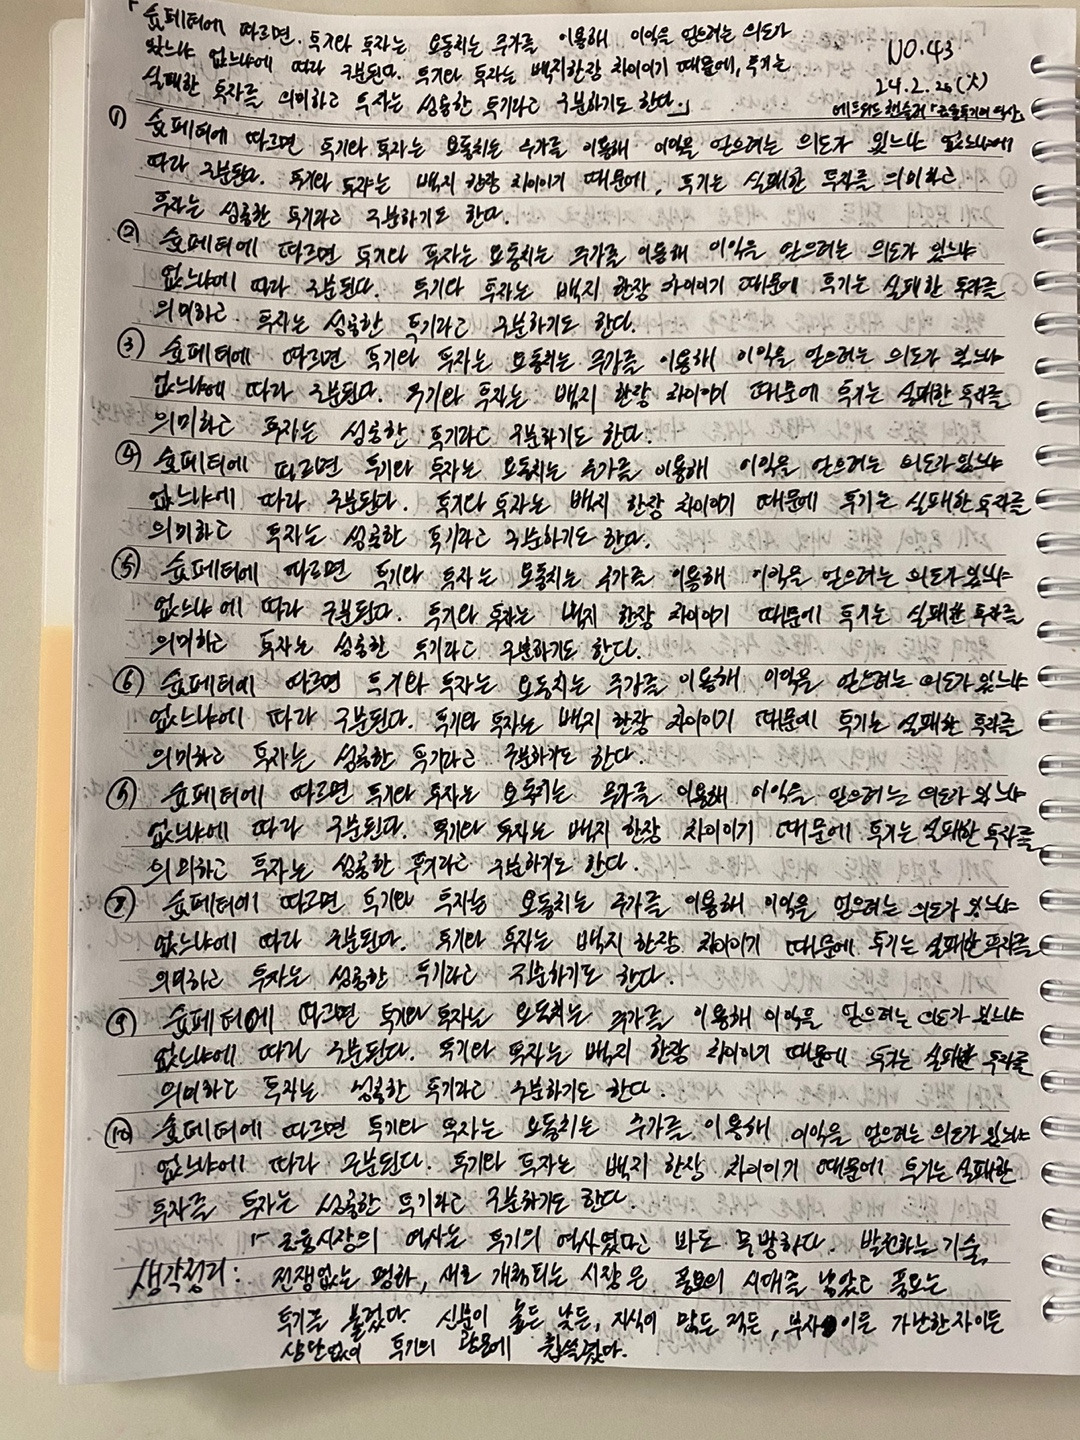 「슘페터에 따르면, 투기와 투자는 요동치는 주가를 이용해 이익을 얻으려는 의도가
있느냐 없느냐에 따라 구분된다. 투기와 투자는 백지한장 차이이기 때문에, 투기는
실패한 투자를 의미하고 투자는 성공한 투기라고 구분하기도 한다.」
NO.43
24.2.20(火)
에드워드 챈슬러 「금융투기의 역사」
① 슘페터에 따르면 투기와 투자는 요동치는 주가를 이용해 이익을 얻으려는 의도가 있느냐 없느냐에
따라 구분된다. 투기와 투자는 백지 한장 차이이기 때문에, 투기는 실패한 투자를 의미하고
투자는 성공한 투기라고 구분하기도 한다.
② 슘페터에 따르면 투기와 투자는 요동치는 주가를 이용해 이익을 얻으려는 의도가 있느냐
없느냐에 따라 구분된다. 투기와 투자는 백지 한장 차이이기 때문에 투기는 실패한 투자를
의미하고 투자는 성공한 투기라고 구분하기도 한다.
③ 슘페터에 따르면 투기와 투자는 요동치는 주가를 이용해 이익을 얻으려는 의도가 있느냐
없느냐에 따라 구분된다. 투기와 투자는 백지 한장 차이이기 때문에 투기는 실패한 투자를
의미하고 투자는 성공한 투기라고 구분하기도 한다.
④ 슘페터에 따르면 투기와 투자는 요동치는 주가를 이용해 이익을 얻으려는 의도가 있느냐
없느냐에 따라 구분된다. 투기와 투자는 백지 한장 차이이기 때문에 투기는 실패한 투자를
의미하고 투자는 성공한 투기라고 구분하기도 한다.
⑤ 슘페터에 따르면 투기와 투자는 요동치는 주가를 이용해 이익을 얻으려는 의도가 있느냐
없느냐에 따라 구분된다. 투기와 투자는 백지 한장 차이이기 때문에 투기는 실패한 투자를
의미하고 투자는 성공한 투기라고 구분하기도 한다.
⑥ 슘페터에 따르면 투기와 투자는 요동치는 주가를 이용해 이익을 얻으려는 의도가 있느냐
없느냐에 따라 구분된다. 투기와 투자는 백지 한장 차이이기 때문에 투기는 실패한 투자를
의미하고 투자는 성공한 투기라고 구분하기도 한다.
⑦ 슘페터에 따르면 투기와 투자는 요동치는 주가를 이용해 이익을 얻으려는 의도가 있느냐
없느냐에 따라 구분된다. 투기와 투자는 백지 한장 차이이기 때문에 투기는 실패한 투자를
의미하고 투자는 성공한 투기라고 구분하기도 한다.
⑧ 슘페터에 따르면 투기와 투자는 요동치는 주가를 이용해 이익을 얻으려는 의도가 있느냐
없느냐에 따라 구분된다. 투기와 투자는 백지 한장 차이이기 때문에 투기는 실패한 투자를
의미하고 투자는 성공한 투기라고 구분하기도 한다.
⑨ 슘페터에 따르면 투기와 투자는 요동치는 주가를 이용해 이익을 얻으려는 의도가 있느냐
없느냐에 따라 구분된다. 투기와 투자는 백지 한장 차이이기 때문에 투기는 실패한 투자를
의미하고 투자는 성공한 투기라고 구분하기도 한다.
⑩ 슘페터에 따르면 투기와 투자는 요동치는 주가를 이용해 이익을 얻으려는 의도가 있느냐
없느냐에 따라 구분된다. 투기와 투자는 백지 한장 차이이기 때문에 투기는 실패한
투자를 투자는 성공한 투기라고 구분하기도 한다.
「금융시장의 역사는 투기의 역사였다고 봐도 무방하다. 발전하는 기술,
생각정리: 전쟁없는 평화, 새로 개척되는 시장은 풍요의 시대를 낳았고 풍요는
투기를 불렀다. 신분이 높든 낮든, 지식이 많든 적든, 부자이든 가난한자이든
상관없이 투기의 광풍에 휩쓸렸다.